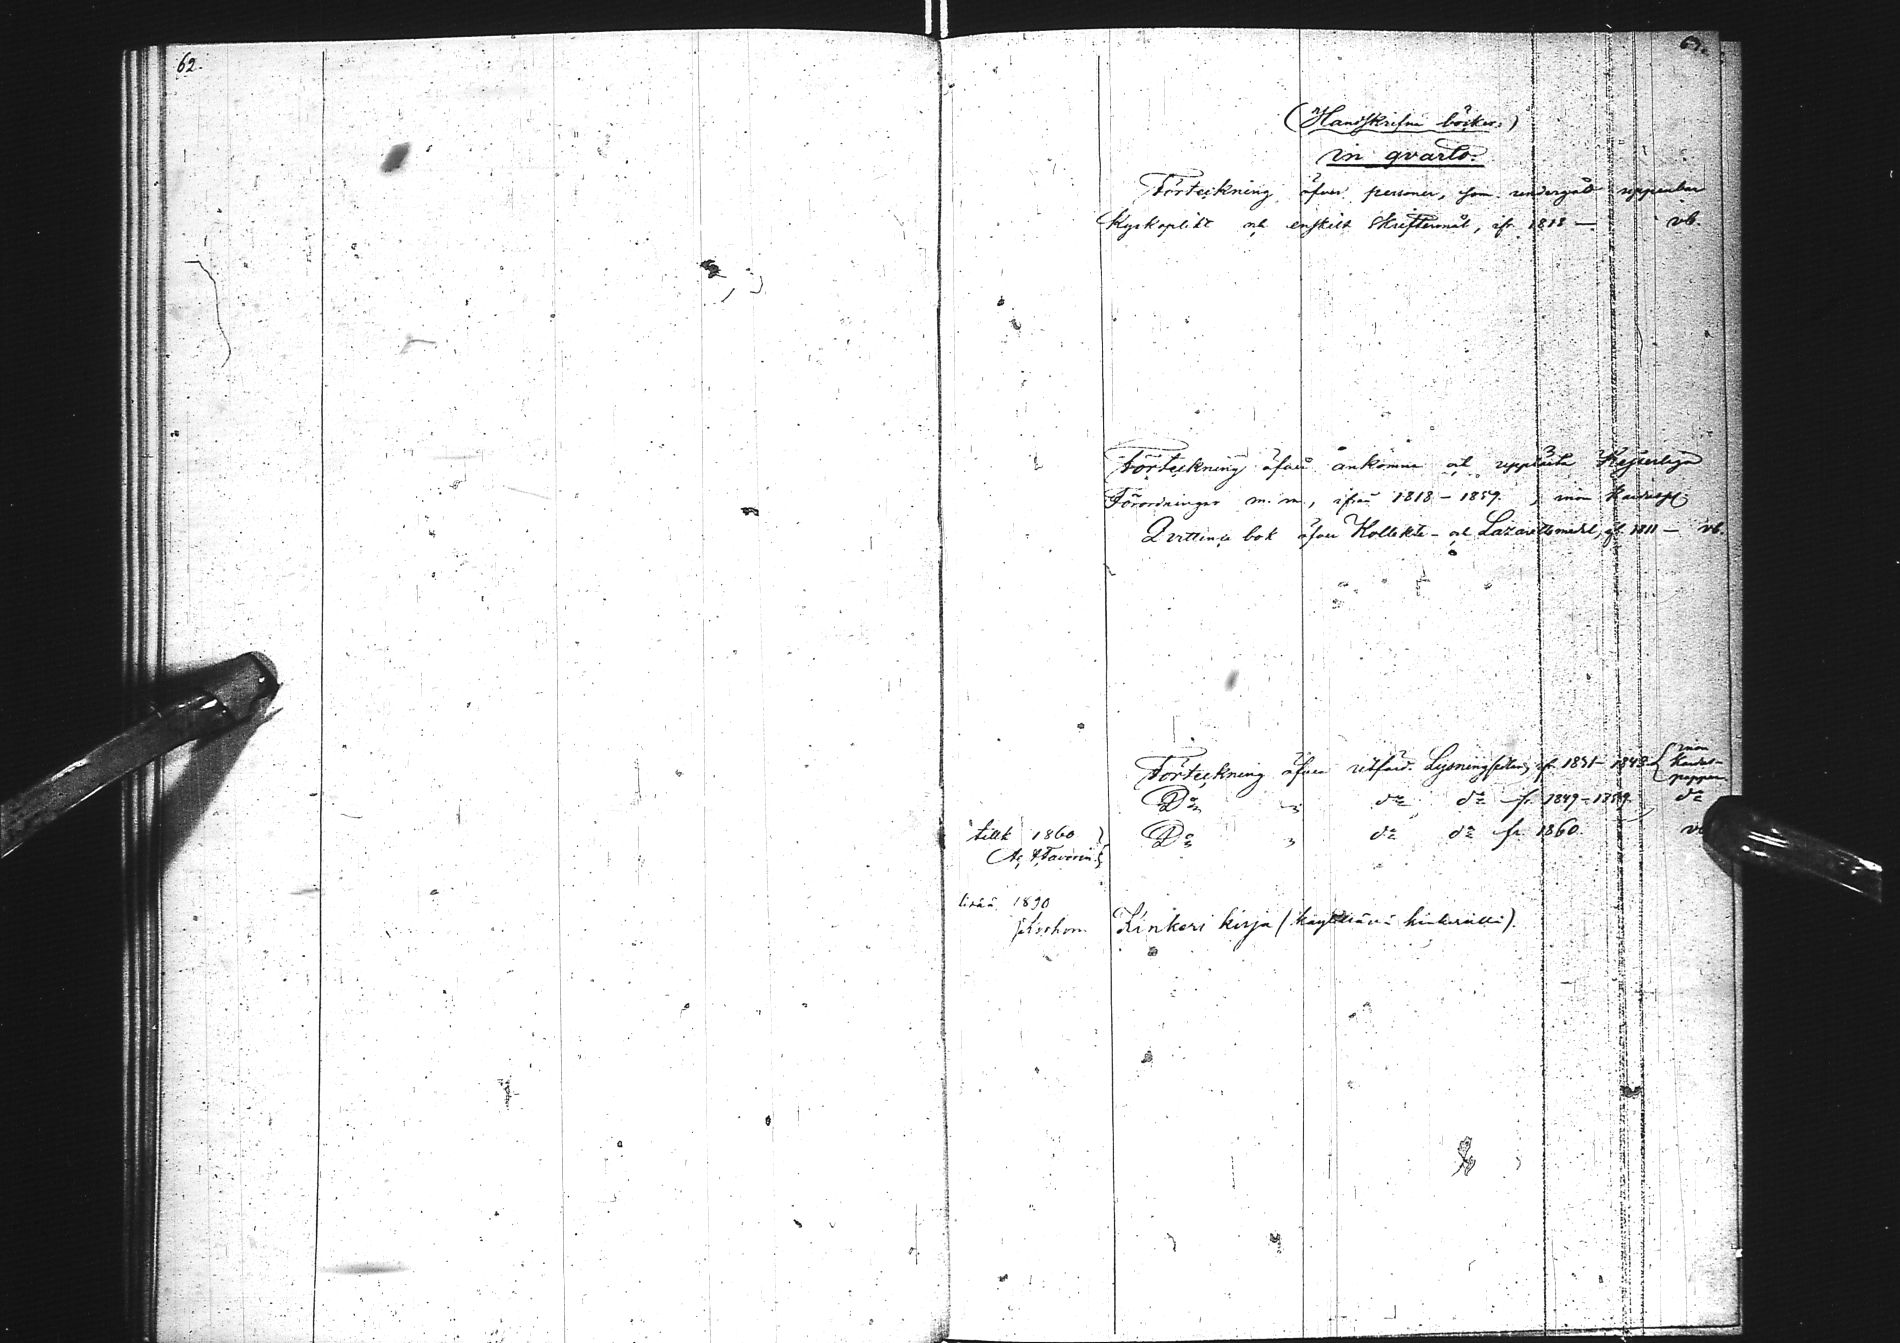 62.
63.
(Handskrifne böcker.)
in qvarto.
Förteckning öfver personer, som undergått uppenbar
Kyrkoplikt och enskilt Skriftermål, ifr. 1818 — vb.
Förteckning öfver ankomne och upplästa Kejserliga
Förordningar m. m., ifrån 1818 – 1859.
Qvittence bok öfver Kollekte- och Lazarettsmedel, ifr. 1811 — vb.
Förteckning öfver utfärd. Lysningssedlar, ifr. 1831 – 1848
Do " do do fr. 1849 – 1859. do
tillk 1860
Do " do do fr 1860.
lisää 1890
Kinkeri kirja (käytettävä kinkerillä).